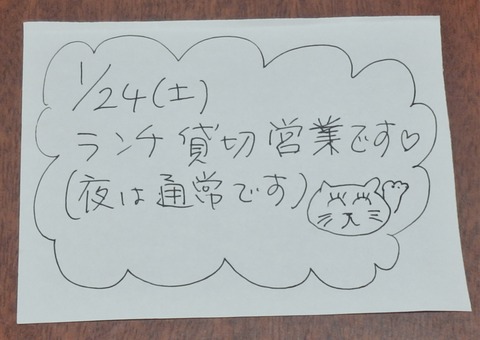 1/24(土)
ランチ貸切営業です♡
(夜は通常です)